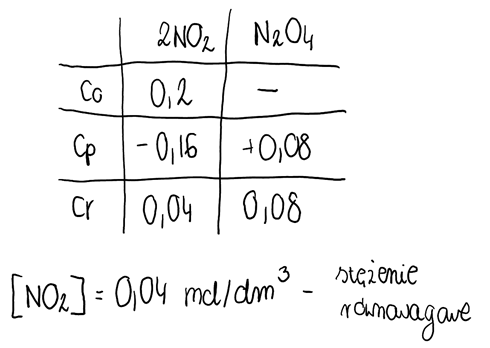 2NO₂ N₂O₄
Co 0,2 —
Cp -0,16 +0,08
Cr 0,04 0,08
[NO₂] = 0,04 mol/dm³ - stężenie
równowagowe